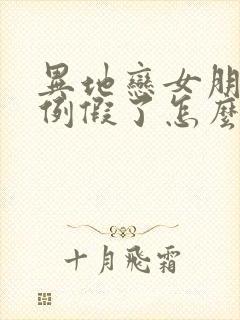 異地戀女朋
例假了怎麼
十月飛霜